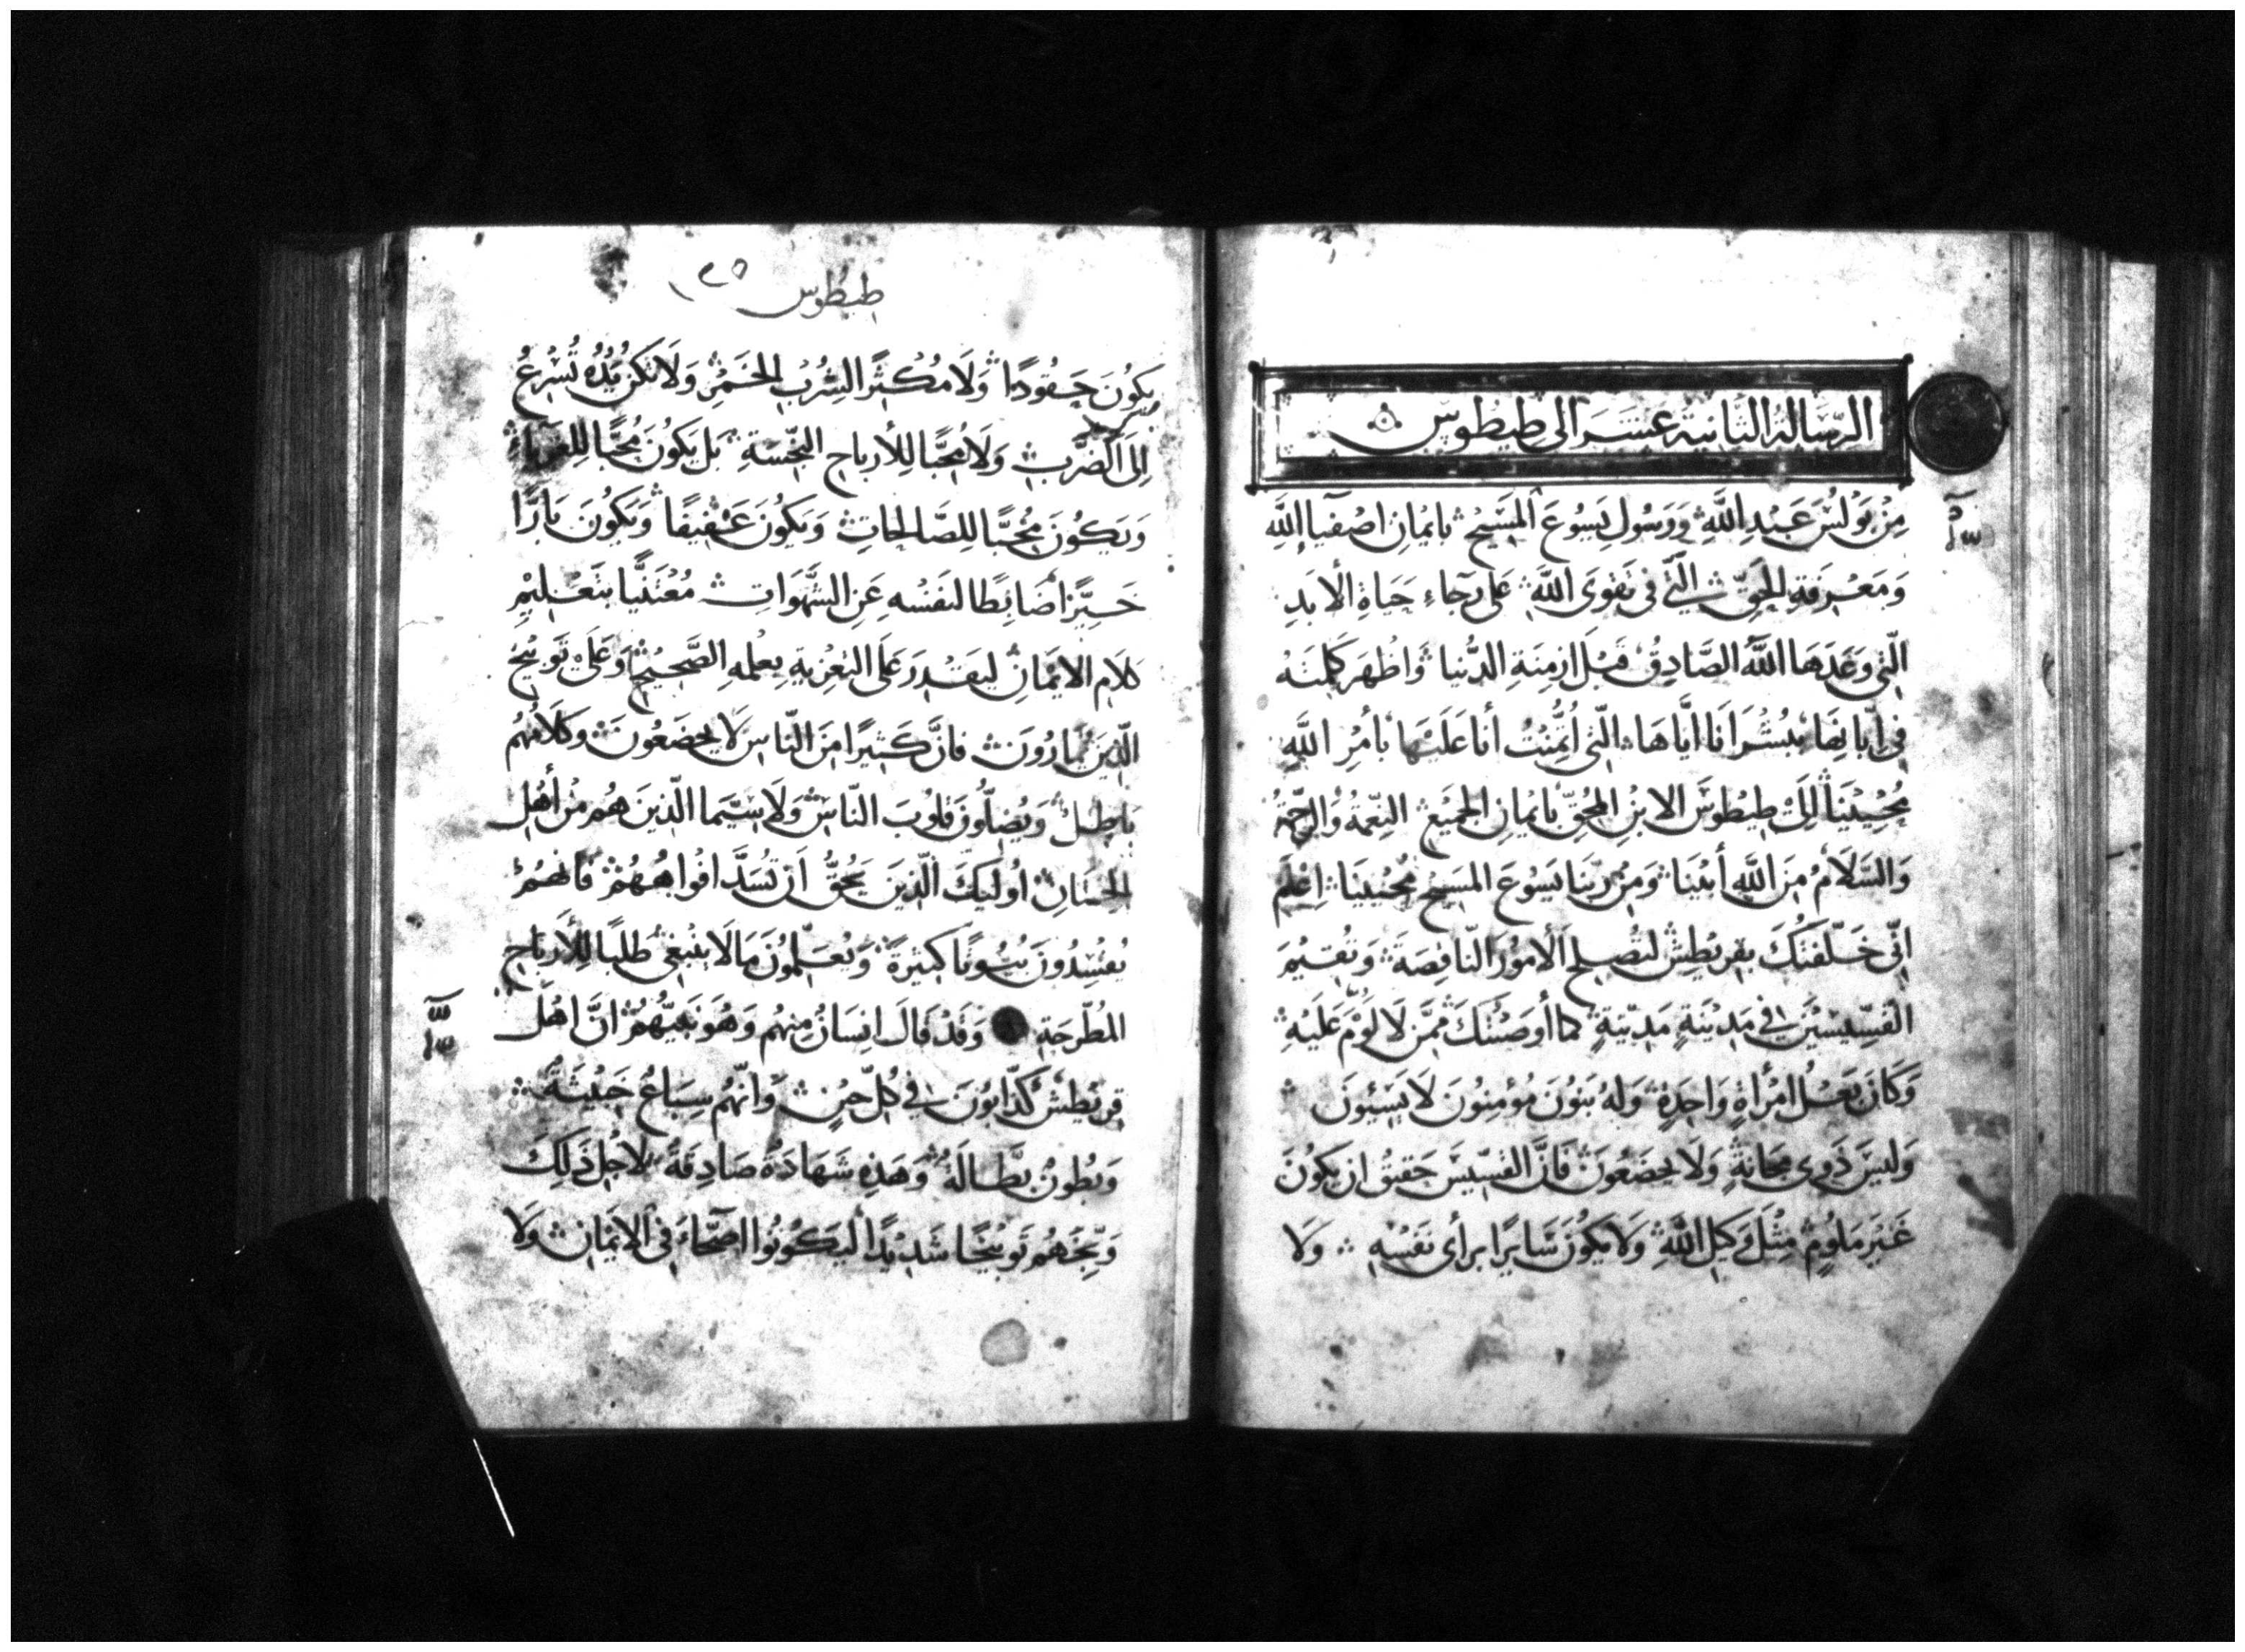 الرِّسَالَة الثانية عشر الى طيطوس
مِنْ بَوْلُسَ عَبْدِ اللَّهِ وَرَسُولِ يَسُوعَ المَسِيحِ بِايْمَانِ اصْفِيَا اللَّهِ
وَمَعْرِفَةِ الحَقِّ الَّتي في تَقْوَى اللَّهِ عَلَى رَجَاءِ حَيَاةِ الابَدِ
الَّتي وَعَدَهَا اللَّهُ الصَّادِقُ قَبْلَ ازمِنَةِ الدُّنيا وَاظْهَرَ كَلِمَتَهُ
في ابّانِهَا بِبُشْرَانَا ايَّاهَا الَّتي اُئتُمِنْتُ أنا عَلَيْهَا بأَمْرِ اللَّهِ
مُحْيِيْنَا الَى طِيْطُوسَ الابْنِ المُحِقّ بايْمانِ الجَمِيْعِ النِّعْمَةُ وَالرَّحْمَةُ
وَالسَّلَامُ مِنَ اللَّهِ أَبِيْنَا وَمِنْ رَبِّنَا يَسُوعَ المَسِيحِ مُحْيِيْنَا اِعْلَم
انّي خَلَّفتُكَ بقريْطِش لتُصْلِحَ الأُمُوْرَ النَّاقِصَةَ وَتُقِيْمَ
القسِّيسِيْنَ في مَدِيْنَةٍ مَدِيْنَةٍ كما أوصَيْتُكَ مِمَّن لَا لَوْمَ عَلَيْهِ
وَكَانَ بَعْلَ امْرأةٍ وَاحِدَةٍ وَلهُ بَنُونَ مُؤمِنُونَ لَا يَسِبُّونَ
وَلَيسَ ذَوي مَجَانَةٍ وَلَا يخضَعُونَ فَانَّ القسِّيْسَ حَقِيْقٌ ان يكُونَ
غَيْرَ مَلُومٍ مِثْلَ وَكِيلِ اللَّهِ وَلَا يَكُونَ سَايرًا برأي نَفْسِهِ وَلَا
طيطوس ١٢٥
يَكُونَ حَقُودًا وَلَا مُكْثِرًا لِشُرْبِ الخَمْرِ وَلَا تَكن يَدُهُ تُسْرِعُ
الَى الضَّرْبِ وَلَا مُحِبًّا لِلأَرباحِ النَّجِسَةِ بَل يَكُونَ مُحِبًّا لِلغُرَبَاءِ
وَيَكُونَ مُحِبًّا لِلصَّالِحَاتِ وَيَكُونَ عَفِيفًا وَيَكُونَ بَارًّا
خَيِّرًا ضَابِطًا لنَفْسِه عَنِ الشَّهَوَاتِ مُعْتَنِيًّا بتَعْلِيْمِ
كَلَامِ الايْمَانِ ليَقْدِرَ عَلَى التعْزِيَةِ بِعِلْمِهِ الصَّحِيْحِ وَعَلَى تَوبِيْخِ
الَّذِينَ يُمَارُونَ فَانَّ كَثِيْرًا مِنَ النَّاسِ لَا يخضَعُونَ وَكَلَامُهُم
بَاطِلٌ وَيُضِلُّونَ قلُوبَ النَّاسِ وَلَا سِيَّمَا الَّذِينَ هُم مِنْ أَهْلِ
الخِتَانِ اُولَيِكَ الَّذِينَ يَحُقُّ اَنْ تُسَدَّ افْوَاهُهُمْ فَانَّهُمْ
يُفسِدُونَ بُيُوتًا كَثِيرَةً وَيُعَلِّمُونَ مَا لَا ينبَغِي طَلَبًا لِلأَربَاحِ
المُطَّرَحَةِ وَقَدْ قَالَ انِسَانٌ مِنهُم وَهُوَ نَبِيُّهُمْ انَّ اهْلَ
قريْطِش كَذَّابُونَ في كُلِّ حِيْنٍ وَانَّهُم سِبَاعٌ خَبِيْثَةٌ
وَبُطُونٌ بطَّالَةٌ وَهَذِهِ شَهَادَةٌ صَادِقَةٌ لاَجْلِ ذَلِكَ
وَبِّخْهُم تَوْبِيْخًا شَدِيْدًا ليَكُونُوا اصِحَّاءَ في الايْمَانِ وَلَا